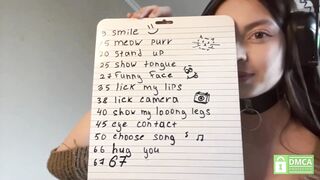 9 smile
15 meow purr
20 stand up
25 show tongue
27 funny face
35 lick my lips
38 lick camera
40 show my looong legs
45 eye contact
50 choose song
66 hug you
67 67
DMCA